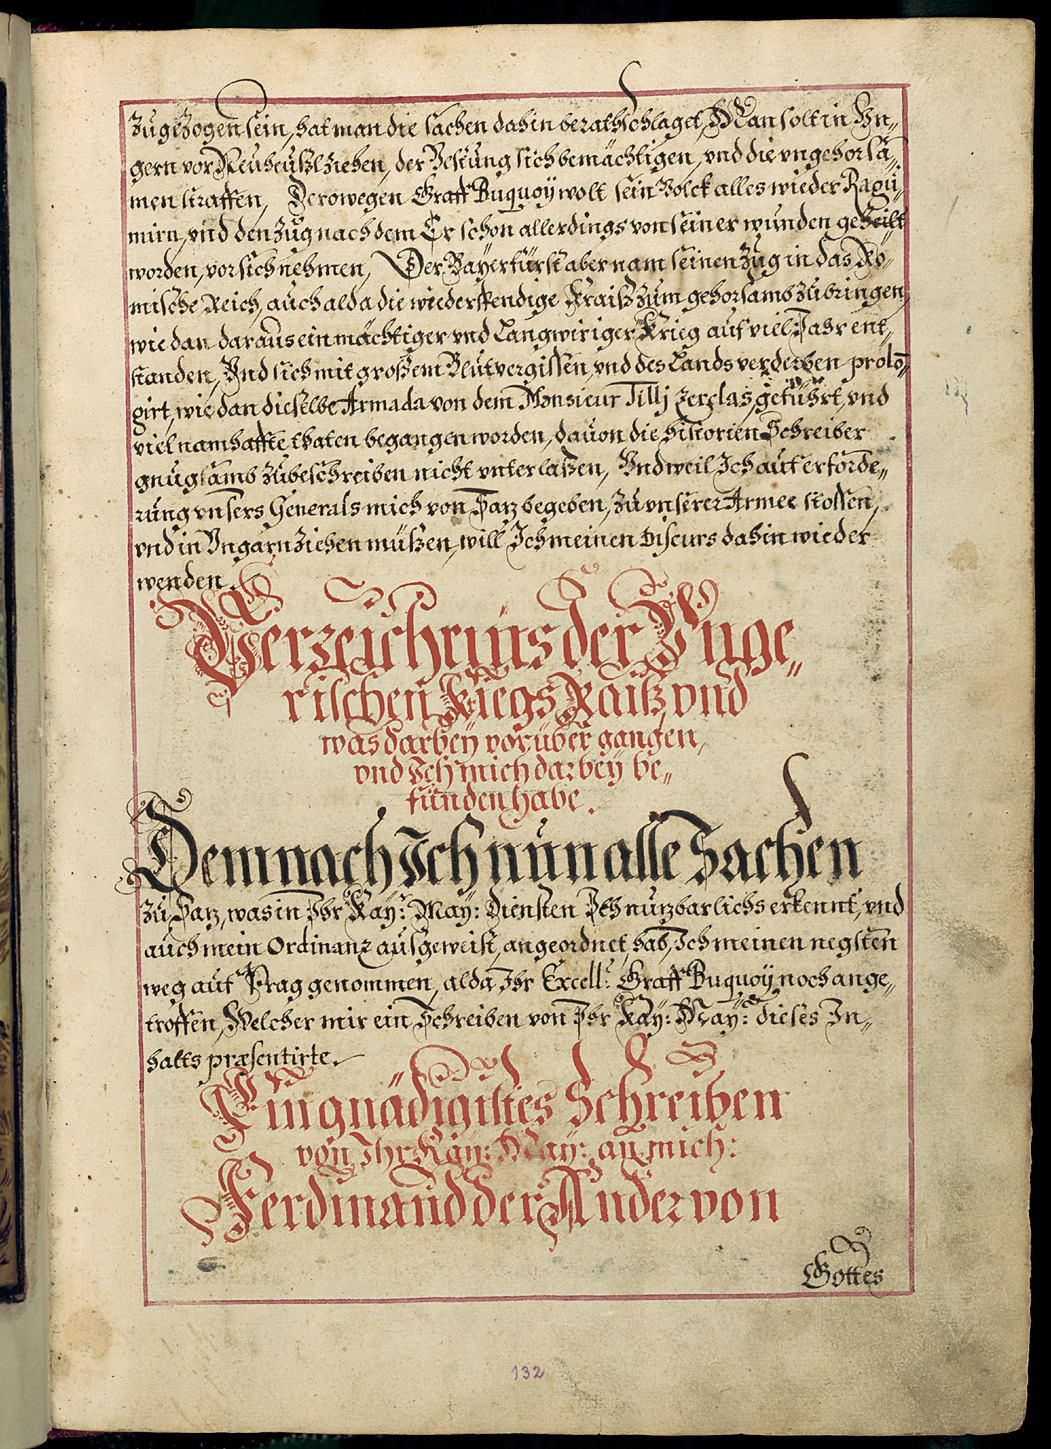 zugezogen sein, hat man die sachen dahin berathschlaget, Man solt in Vn„
gern vor Neuheusl ziehen, der Vestung sich bemächtigen, vnd die vngehorsa„
men straffen, Derowegen Graff Buquoÿ wolt sein Volck alles wieder
mirn, vnd den Zug nach dem Er schon allerdings von seiner wunden geheilt
worden, vor sich nehmen, Der Bayerfürst aber nam seinen Zug in das Rö„
mische Reich, auch alda die wiederspendige Kraiß zum gehorsamb zubringen,
wie dan daraus ein mächtiger vnd Langwiriger Krieg auf viel Jahr ent„
standen, Vnd sich mit großem Blutvergissen, vnd des Lands verderben prolo„
girt, wie dan dieselbe Armada von dem Monsieur Tillj Zerclas, geführt, vnd
viel namhaffte thaten begangen worden, dauon die Historien Schreiber
gnugsamb zubeschreiben nicht vnterlaßen, Vnd weil Ich auf erforde„
rung vnsers Generals mich von Saz begeben, zu vnserer Armee stossen,
vnd in Vngarn ziehen müßen, will Ich meinen Discurs dahin wieder
wenden.
Verzeichnüs der Vnge„
rischen Kriegs Raiß, vnd
was darbeÿ vorüber gangen,
vnd Ich mich darbeÿ be„
funden habe.
Demnach Ich nun alle Sachen
zu Saz, was in Ihr Kay: May: Diensten Ich nuzbarlichs erkennt, vnd
auch mein Ordinanz ausgeweist, angeordnet, hab, Ich meinen negsten
weg auf Prag genommen, alda Ihr Excell: Graff Buquoÿ noch ange„
troffen, Welcher mir ein Schreiben von Ihr Kay: May: dieses In„
halts præsentirte.
Ein gnädigistes Schreiben
von Ihr Kay: May: an mich:
Ferdinand der Ander von
Gottes
132